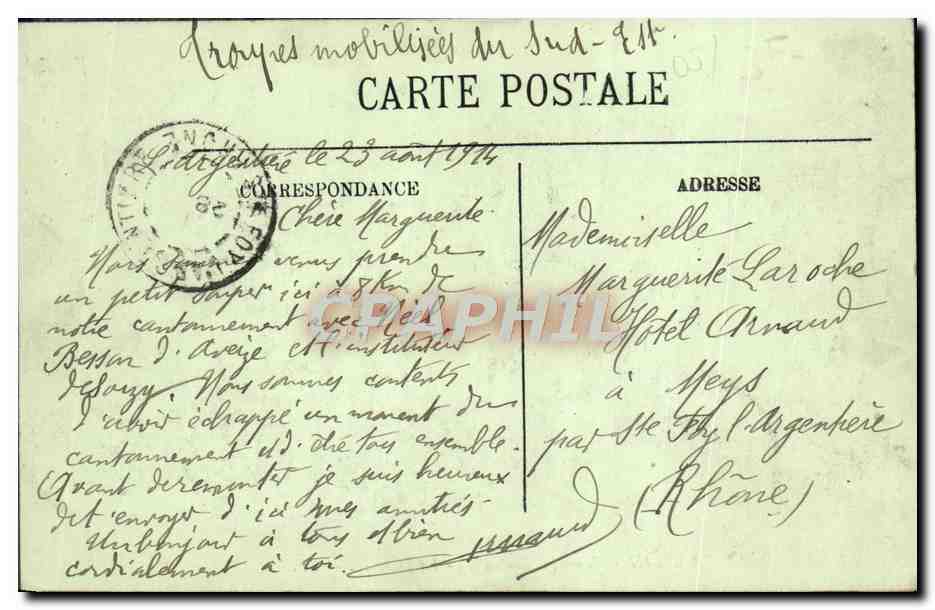 Troupes mobilisées du Sud-Est.
CARTE POSTALE
L'Argentière le 23 août 1914
CORRESPONDANCE
ADRESSE
Chère Marguerite
Nous sommes venus prendre
un petit souper ici à 8 Km de
notre cantonnement avec
Besson d'Aveize et l'instituteur
de Souzy. Nous sommes contents
d'avoir échappé un moment du
cantonnement et d'être tous ensemble.
Avant de remonter je suis heureux
de t'envoyer d'ici mes amitiés
Un bonjour à tous et bien
cordialement à toi.
Arnaud
Mademoiselle
Marguerite Laroche
Hôtel Arnaud
à Meys
par Ste Foy l'Argentière
(Rhône)
CPAPHIL